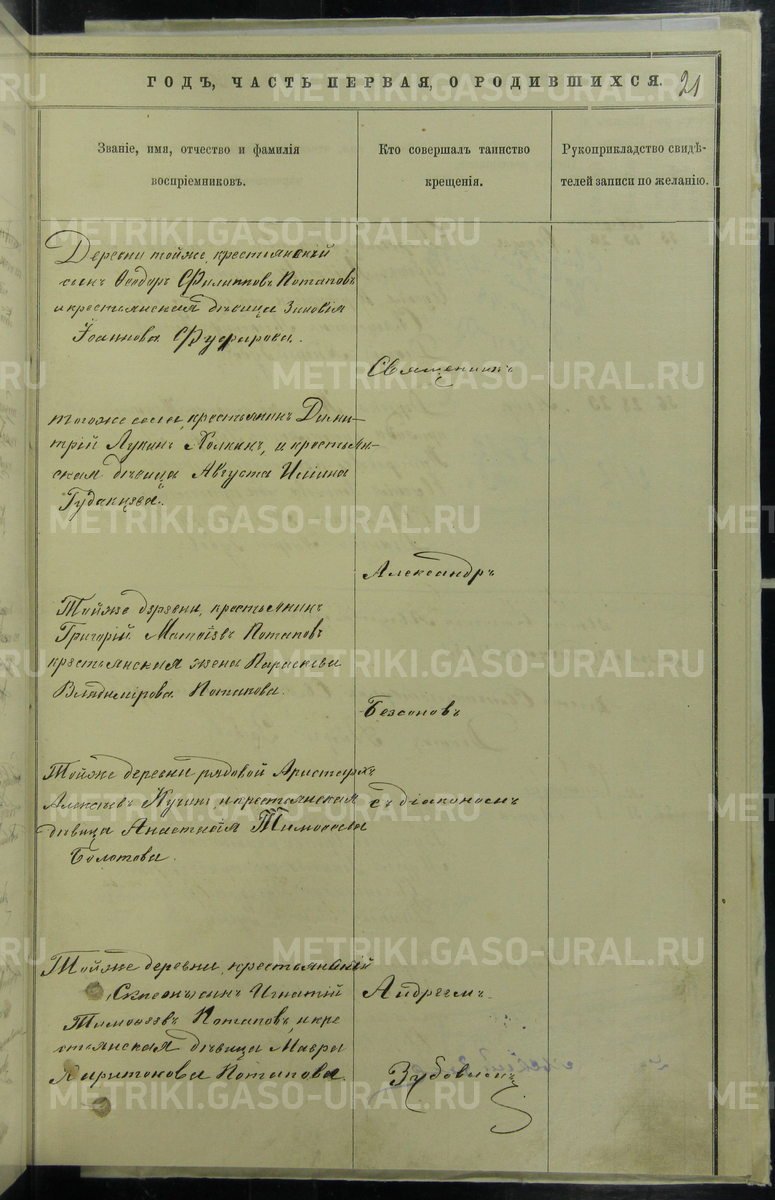 ГОДЪ, ЧАСТЬ ПЕРВАЯ, О РОДИВШИХСЯ. 21
Званіе, имя, отчество и фамилія
воспріемниковъ.
Кто совершалъ таинство
крещенія.
Рукоприкладство свидѣ-
телей записи по желанію.
Деревни тойже, крестьянскій
сынъ Ѳеодоръ Филипповъ Потаповъ
и крестьянская дѣвица Зиновія
Іоаннова
Тогоже села, крестьянинъ Дими-
трій Лукинъ и крестьян-
ская дѣвица Августа Иліина
Тойже деревни, крестьянинъ
Григорій Матѳіевъ Потаповъ
крестьянская жена Параскева
Владимірова Потапова.
Тойже деревни рядовой Аристархъ
Алексіевъ и крестьянская
дѣвица Анастасія Тимоѳеева
Болотова.
Тойже деревни, крестьянскій
сынъ Игнатій
Тимоѳеевъ Потаповъ, и кре
стьянская дѣвица Мавра
Харитонова Потапова.
Священникъ
Александръ
Безсоновъ
съ діакономъ
Андреемъ
Зубовымъ
METRIKI.GASO-URAL.RU